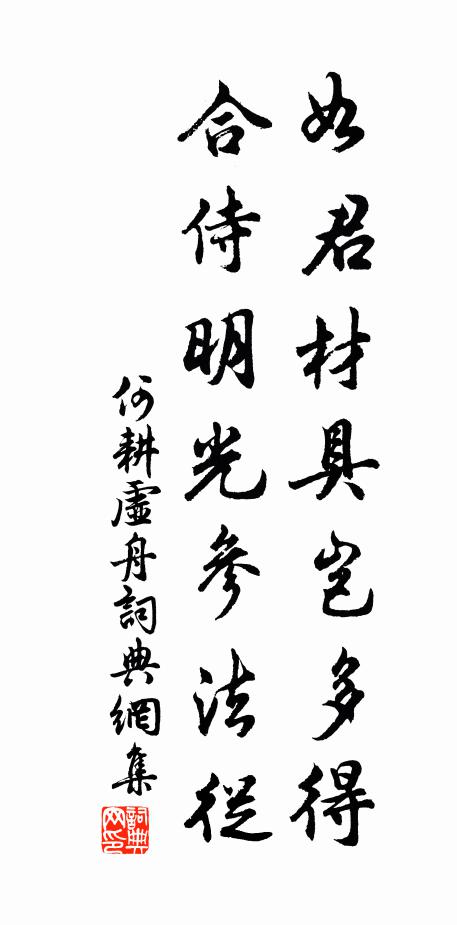 如君材具豈多得
合侍明光參法從
何耕虛舟詞典網集
詞典網印